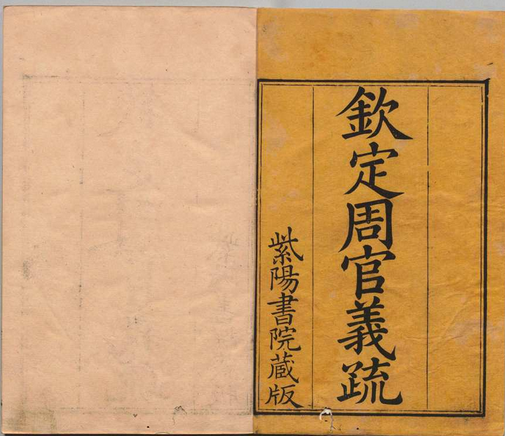 欽定周官義疏
紫陽書院藏版